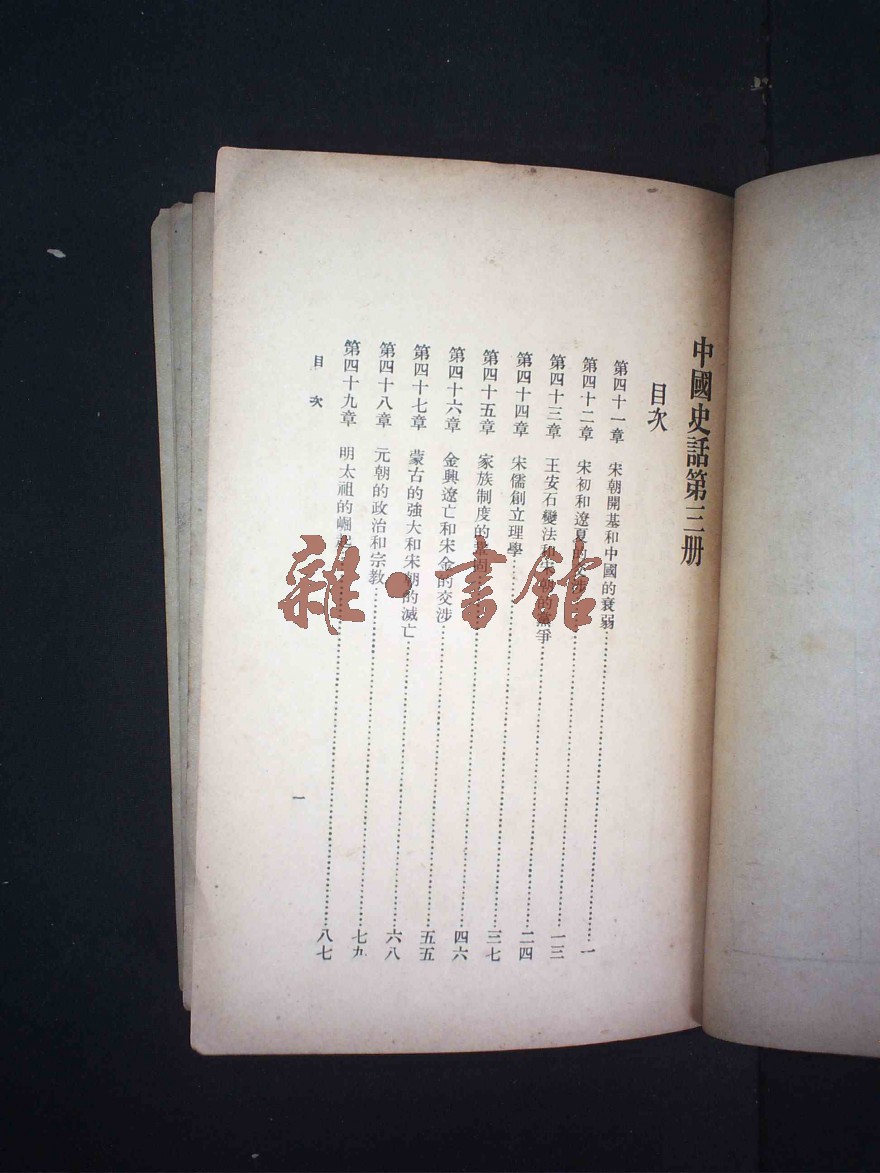 中國史話第三册
目次
第四十一章 宋朝開基和中國的衰弱……一
第四十二章 宋初和遼夏的交涉……一三
第四十三章 王安石變法和宋朝的黨爭……二四
第四十四章 宋儒創立理學……三七
第四十五章 家族制度的鞏固……四六
第四十六章 金興遼亡和宋金的交涉……五五
第四十七章 蒙古的強大和宋朝的滅亡……六八
第四十八章 元朝的政治和宗教……七九
第四十九章 明太祖的崛起……八七
目次
一
雜·書館